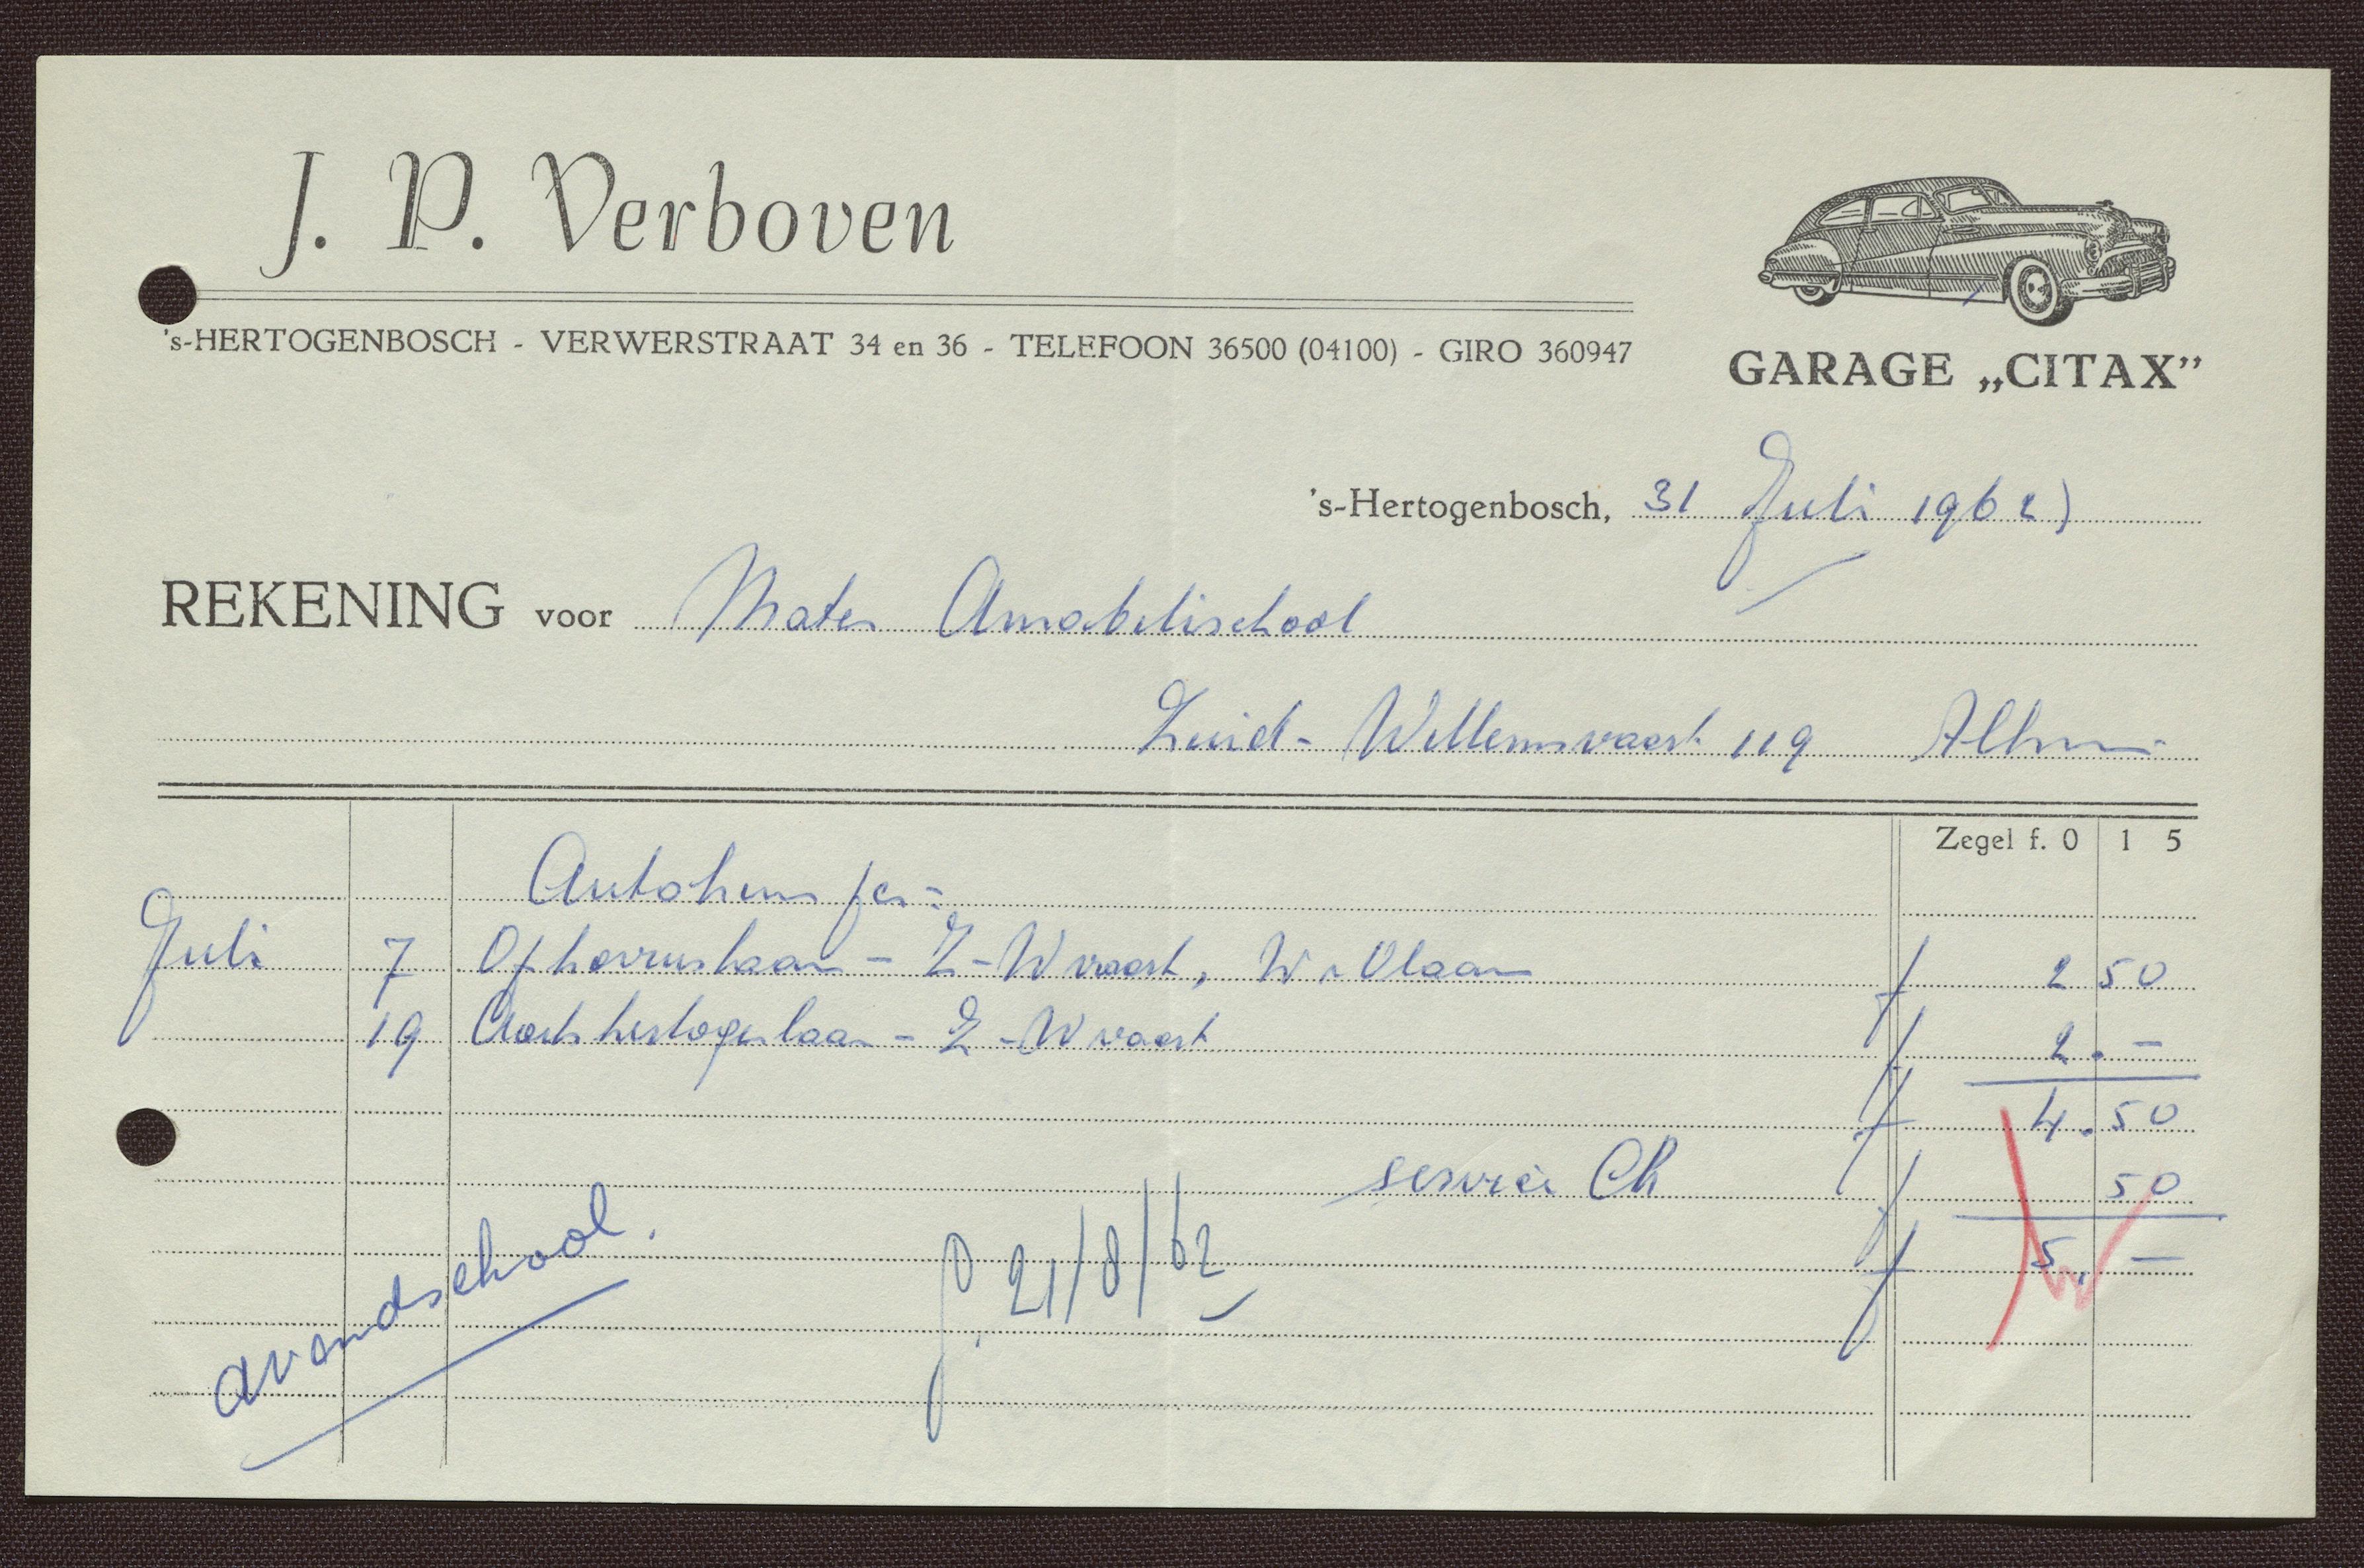 J. P. Verboven
's-HERTOGENBOSCH - VERWERSTRAAT 34 en 36 - TELEFOON 36500 (04100) - GIRO 360947
GARAGE „CITAX”
's-Hertogenbosch, 31 Juli 1962
REKENING voor Mater Amabilischool
Zuid-Willemsvaart 119 Alhier
Zegel f. 0 15
Autohuur per:
Juli 7 Ophovenslaan - Z-Wvaart, W. Vlaan f 2 50
19 Aartshertogenlaan - Z-Wvaart f 2.-
f 4.50
service Ch f 50
f 5,-
avondschool.
p. 21/8/62